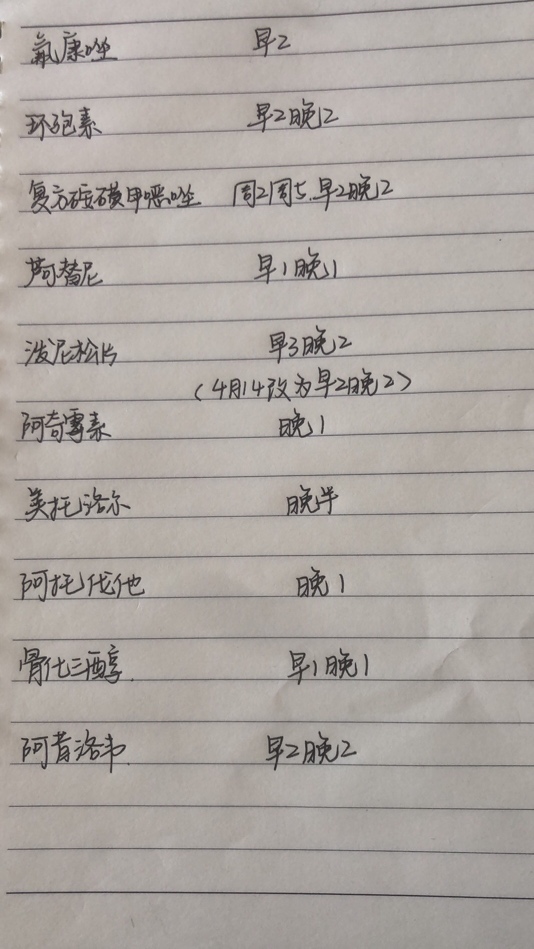 氟康唑 早2
环孢素 早2晚2
复方磺胺甲噁唑 周2周5.早2晚2
芦可替尼 早1晚1
泼尼松片 早3晚2
(4月14改为早2晚2)
阿奇霉素 晚1
美托洛尔 晚半
阿托伐他 晚1
骨化三醇. 早1晚1
阿昔洛韦. 早2晚2